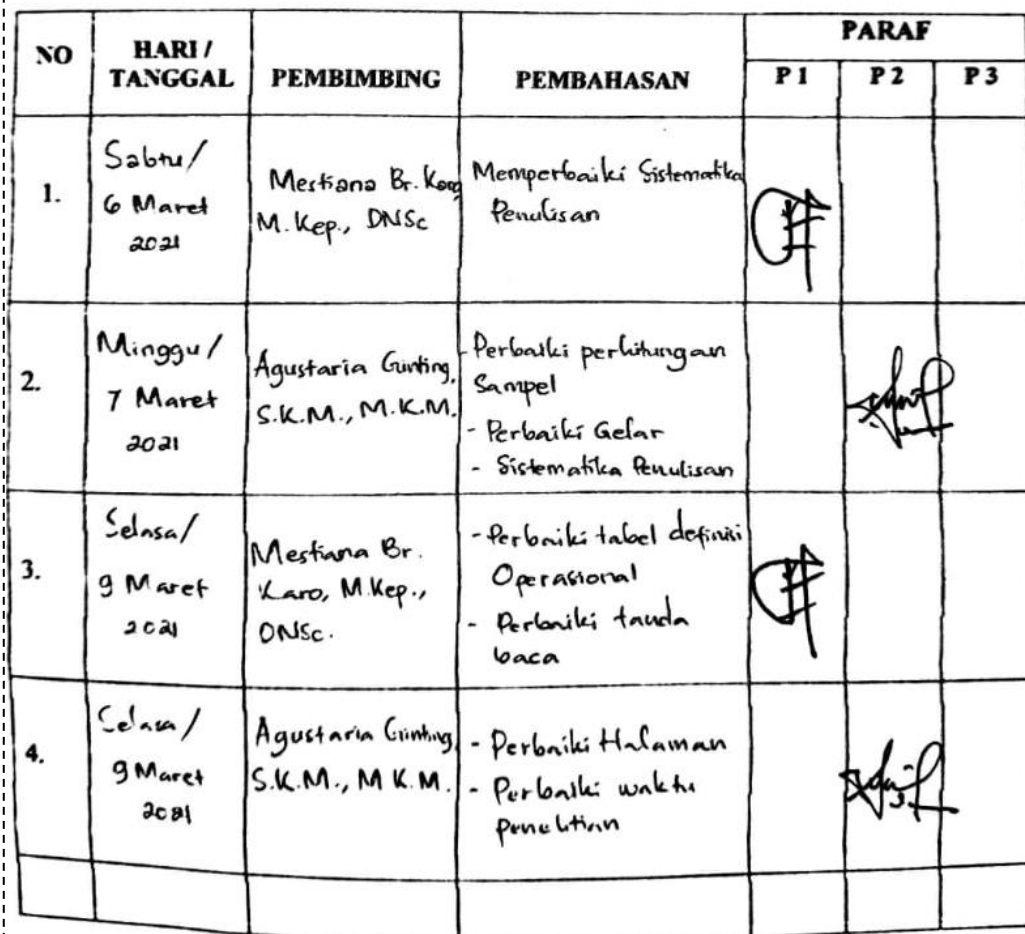 NO HARI / TANGGAL PEMBIMBING PEMBAHASAN PARAF
P 1 P 2 P 3
1.
Sabtu/
6 Maret
2021
Mestiana Br. Karo
M. Kep., DNSc
Memperbaiki Sistematika
Penulisan
2.
Minggu/
7 Maret
2021
Agustaria Ginting,
S.K.M., M.K.M.
-Perbaiki perhitungan
Sampel
- Perbaiki Gelar
- Sistematika Penulisan
3.
Selasa/
9 Maret
2021
Mestiana Br.
Karo, M.Kep.,
DNSc.
-Perbaiki tabel definisi
Operasional
- Perbaiki tanda
baca
4.
Selasa/
9 Maret
2021
Agustaria Ginting
S.K.M., M K.M.
- Perbaiki Halaman
- Perbaiki waktu
penelitian